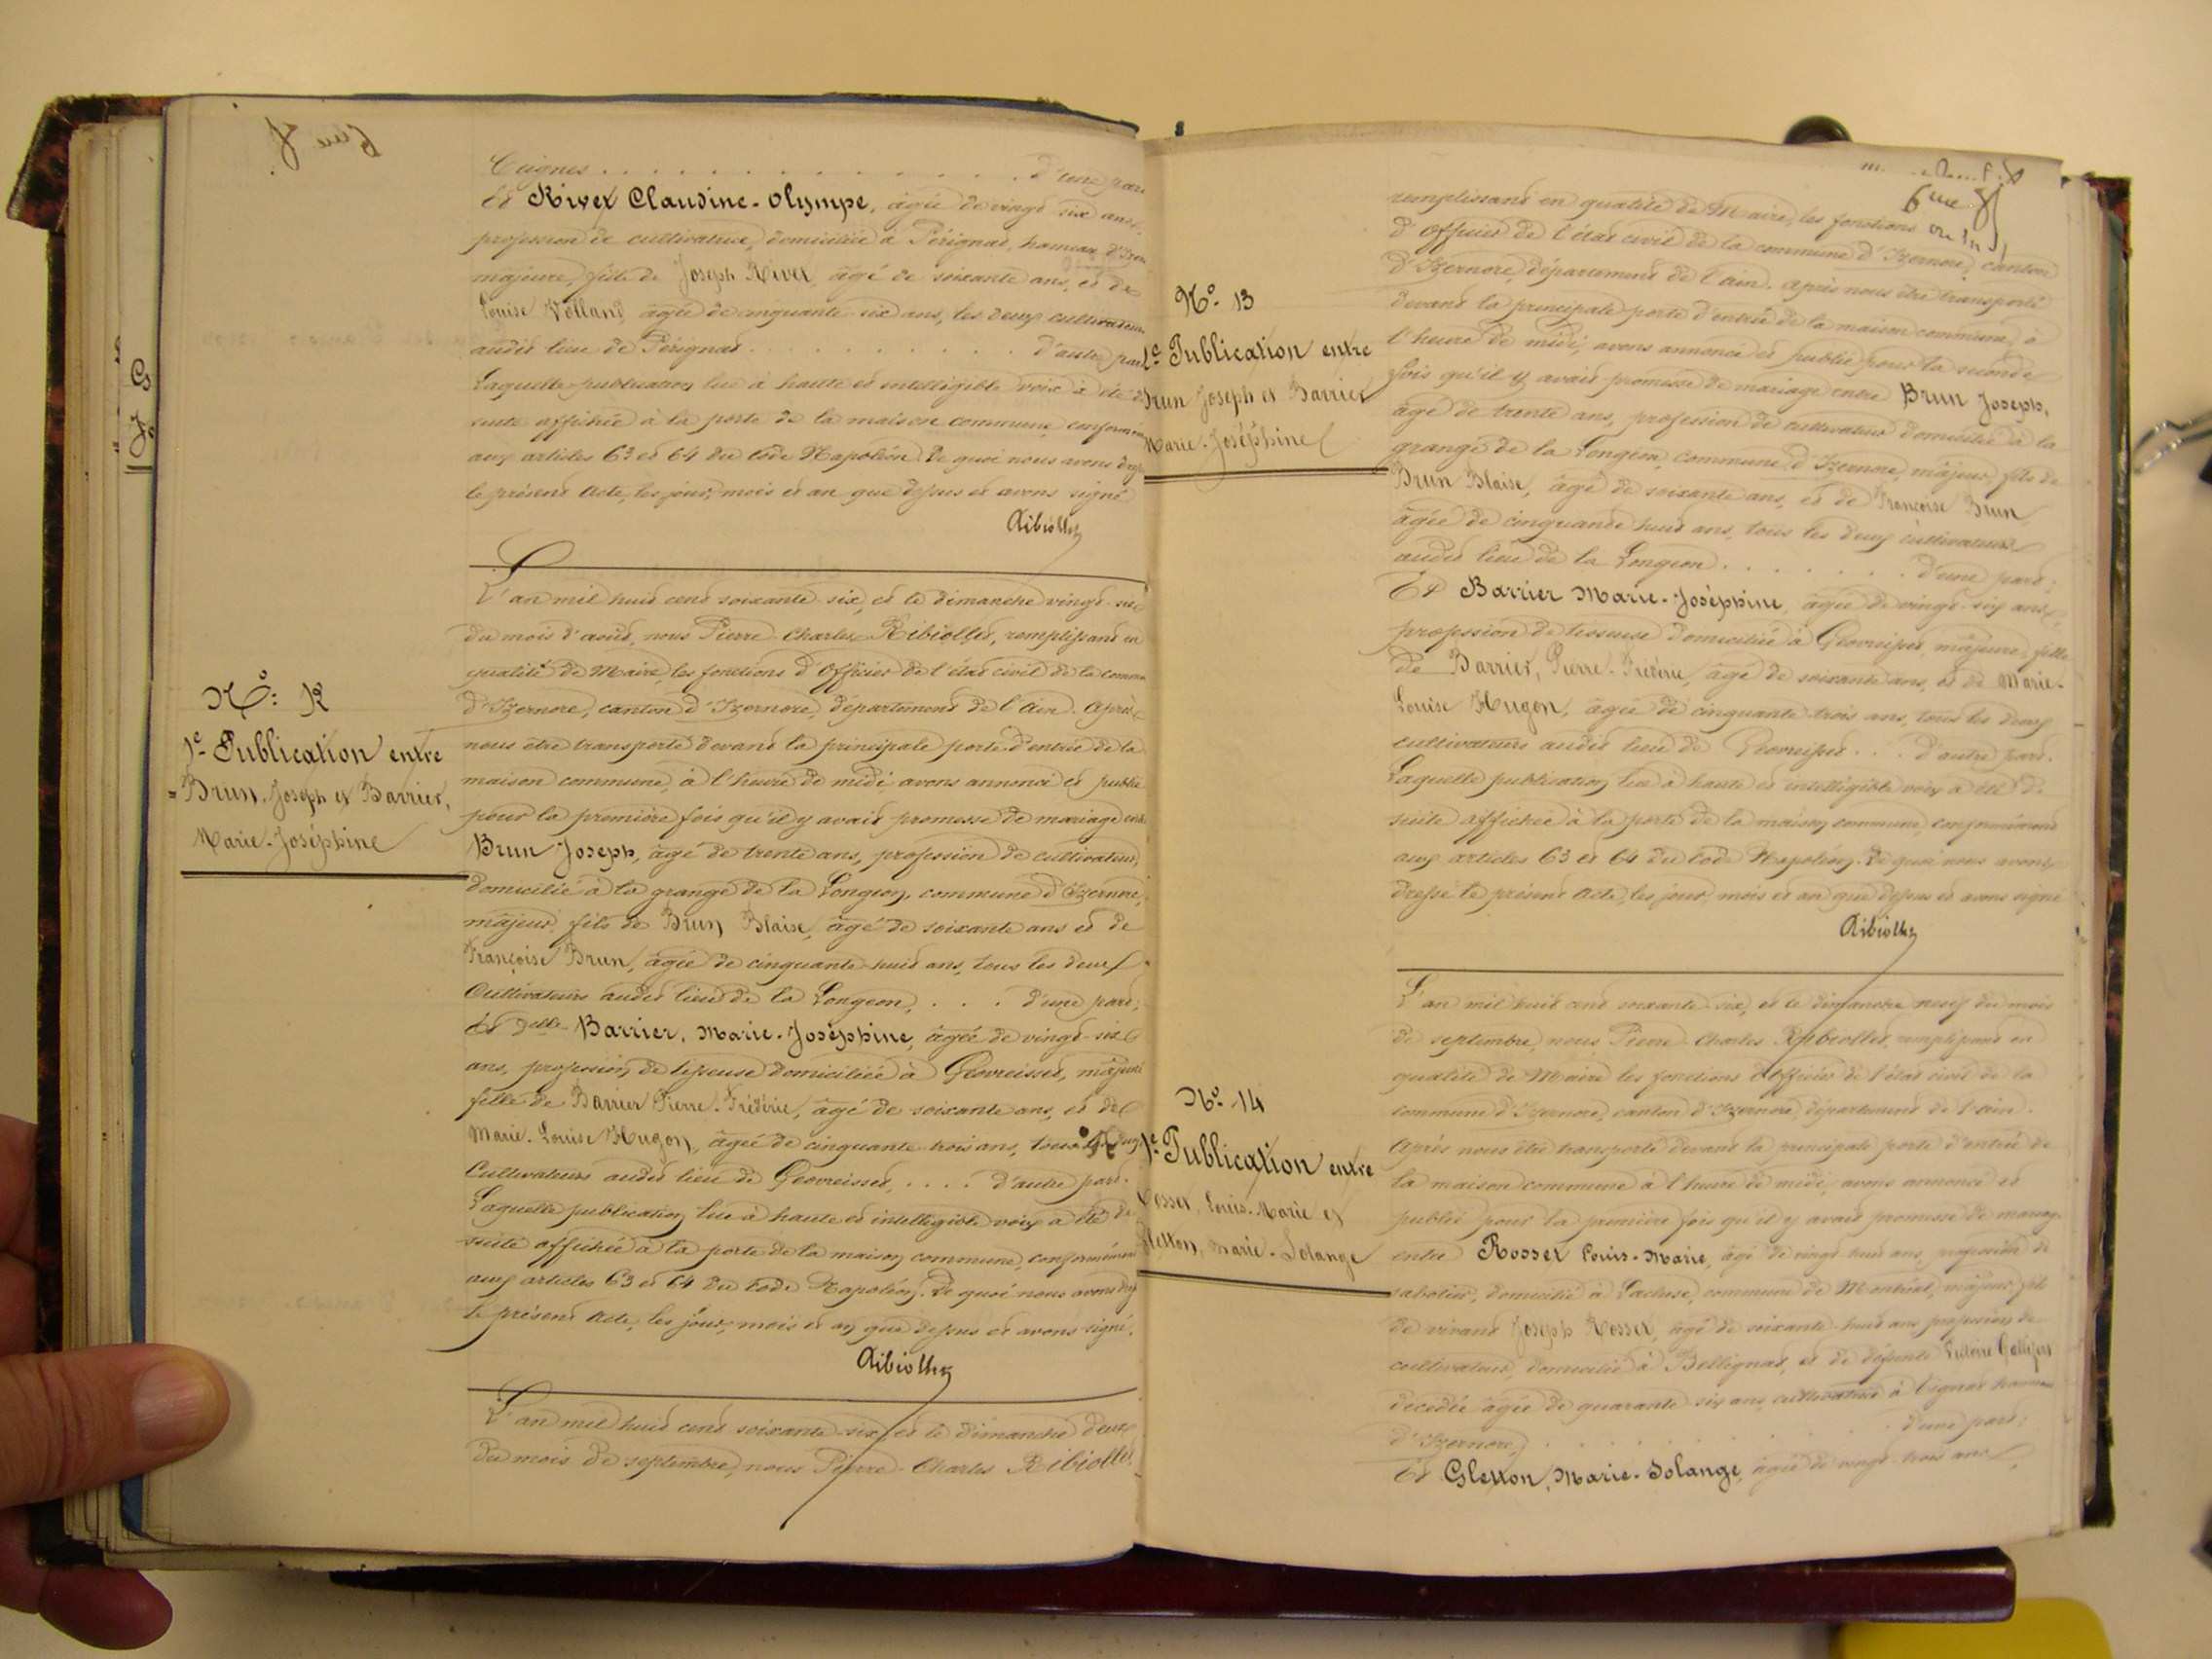 Ceignes . . . . . . . . . . . . . . d'une part
Et Rivet Claudine-Olympe, âgée de vingt six ans,
profession de cultivatrice, domiciliée à Pérignat, hameau d'Izer
majeure, fille de Joseph Rivet, âgé de soixante ans, et de
Louise Volland, âgée de cinquante six ans, les deux cultivateurs
audit lieu de Pérignat . . . . . . . . . . d'autre part
Laquelle publication lue à haute et intelligible voix a été de
suite affichée à la porte de la maison commune, conformém
aux articles 63 et 64 du Code Napoléon. De quoi nous avons dres
le présent acte, les jour, mois et an que dessus et avons signé
Ribiollet
N°. 12
1e Publication entre
Brun, Joseph et Barrier,
Marie-Joséphine
L'an mil huit cent soixante-six, et le dimanche vingt-six
du mois d'août, nous Pierre-Charles Ribiollet, remplissant en
qualité de Maire, les fonctions d'Officier de l'état civil de la commu
d'Izernore, canton d'Izernore, département de l'Ain. Après
nous être transporté devant la principale porte d'entrée de la
maison commune, à l'heure de midi avons annoncé et publié
pour la première fois qu'il y avait promesse de mariage entre
Brun Joseph, âgé de trente ans, profession de cultivateur,
domicilié à la grange de la Longeon, commune d'Izernore,
majeur, fils de Brun Blaise, âgé de soixante ans et de
Françoise Brun, âgée de cinquante-huit ans, tous les deux
Cultivateurs audit lieu de la Longeon, . . . d'une part;
Et Delle Barrier, Marie-Joséphine, âgée de vingt-six
ans, profession de tisseuse domiciliée à Géovreisset, majeure
fille de Barrier Pierre-Frédéric, âgé de soixante ans, et de
Marie-Louise Hugon, âgée de cinquante-trois ans, tous les deux
Cultivateurs audit lieu de Géovreisset, . . . . d'autre part.
Laquelle publication lue à haute et intelligible voix a été de
suite affichée à la porte de la maison commune, conformément
aux articles 63 et 64 du Code Napoléon. De quoi nous avons dres
le présent acte, les jour, mois et an que dessus et avons signé.
Ribiollet
L'an mil huit cent soixante-six, et le dimanche deux
du mois de septembre, nous Pierre-Charles Ribiollet,
6me f
remplissant en qualité de Maire, les fonctions
d'Officier de l'état civil de la commune d'Izernore, canton
d'Izernore, département de l'Ain. Après nous être transporté
devant la principale porte d'entrée de la maison commune, à
l'heure de midi, avons annoncé et publié pour la seconde
fois qu'il y avait promesse de mariage entre Brun Joseph,
âgé de trente ans, profession de cultivateur domicilié à la
grange de la Longeon, commune d'Izernore, majeur, fils de
Brun Blaise, âgé de soixante ans, et de Françoise Brun
âgée de cinquante huit ans, tous les deux cultivateurs
audit lieu de la Longeon . . . . . . . d'une part;
Et Barrier Marie-Joséphine, âgée de vingt-six ans,
profession de tisseuse domiciliée à Géovreisset, majeure, fille
de Barrier, Pierre-Frédéric, âgé de soixante ans, et de Marie-
Louise Hugon, âgée de cinquante-trois ans, tous les deux
cultivateurs audit lieu de Géovreisset . . d'autre part.
Laquelle publication lue à haute et intelligible voix a été de
suite affichée à la porte de la maison commune, conformément
aux articles 63 et 64 du Code Napoléon. De quoi nous avons
dressé le présent acte, les jour, mois et an que dessus et avons signé
Ribiollet
N°. 13
Publication entre
Brun Joseph et Barrier
Marie-Joséphine
N°. 14
1e Publication entre
Rosset, Louis-Marie et
Gletton, Marie-Solange
L'an mil huit cent soixante-six, et le dimanche neuf du mois
de septembre, nous Pierre-Charles Ribiollet, remplissant en
qualité de Maire les fonctions d'Officier de l'état civil de la
commune d'Izernore, canton d'Izernore, département de l'Ain.
Après nous être transporté devant la principale porte d'entrée de
la maison commune à l'heure de midi, avons annoncé et
publié pour la première fois qu'il y avait promesse de mariage
entre Rosset Louis-Marie, âgé de vingt-huit ans, profession de
sabotier, domicilié à Lacluse, commune de Montréal, majeur, fils
de vivant Joseph Rosset, âgé de soixante-huit ans, profession de
cultivateur, domicilié à Bellignat, et de défunte
décédée âgée de quarante-six ans, cultivatrice à hameau
d'Izernore, . . . . . . . . . d'une part;
Et Gletton, Marie-Solange, âgée de vingt-trois ans,